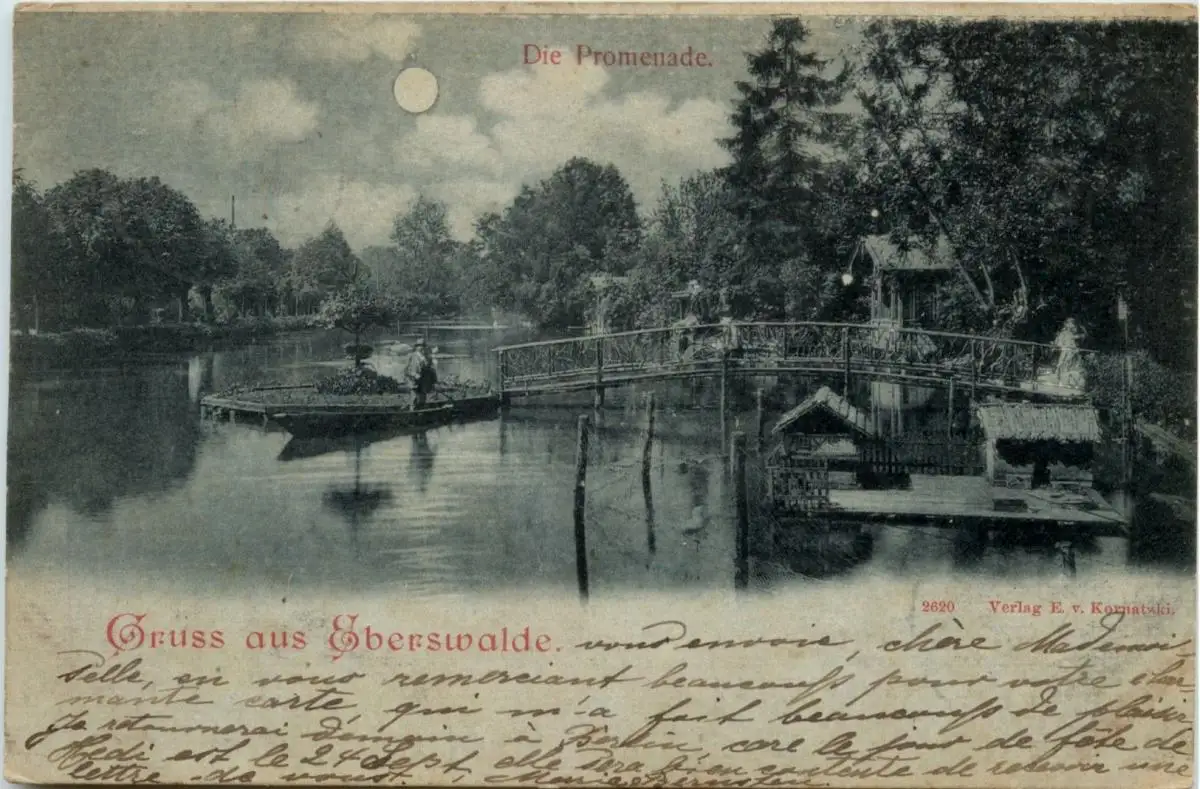 Die Promenade.
2620 Verlag E. v. Kornatzki.
Gruss aus Eberswalde. vous envoie, chère Mademoi-
selle, en vous remerciant beaucoup pour votre char-
mante carte, qui m'a fait beaucoup de plaisir
Je retournerai demain à Berlin, care le jour de fête de
Hedi est le 24 Sept. elle sera contente de recevoir une
lettre de vous. Marie